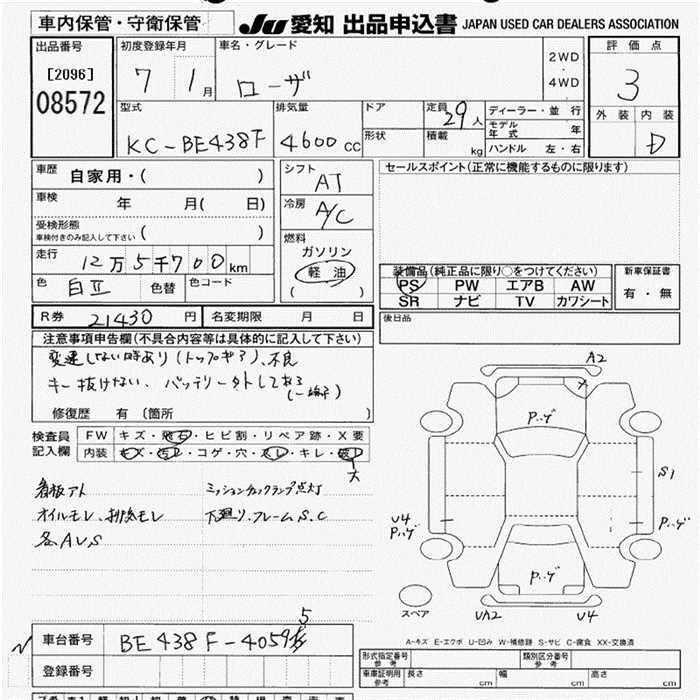 車内保管・守衛保管
JU 愛知 出品申込書 JAPAN USED CAR DEALERS ASSOCIATION
出品番号
[2096]
08572
初度登録年月
7 1月
車名・グレード
ローザ
2WD
・
4WD
評価点
3
外装 内装
D
型式
KC-BE438F
排気量
4600cc
ドア
形状
定員 29人
積載 kg
ディーラー・並行
モデル年式 年
ハンドル 左・右
車歴 自家用・( )
車検 年 月( 日)
受検形態
車検付きのみ記入して下さい ( )
走行 12万5千700km
色 白II 色替 色コード
シフト AT
冷房 A/C
燃料
ガソリン
軽油
( )
セールスポイント(正常に機能するものに限ります)
装備品(純正品に限り○をつけてください)
PS PW エアB AW
SR ナビ TV カワシート
新車保証書
有・無
R券 21430円 名変期限 月 日
後日品
注意事項申告欄(不具合内容等は具体的に記入して下さい)
変速しない時あり(トップギア)、不良
キー抜けない、バッテリー外してある
(一端子)
修復歴 有(箇所 )
検査員
記入欄
FW キズ・飛石・ヒビ割・リペア跡・X要
内装 キズ・汚レ・コゲ・穴・スレ・キレ・破レ
大
看板アト ミッションチェックランプ点灯
オイルモレ、排気モレ 下廻り、フレームS.C
各A.U.S
A2
Pハゲ
S1
U4
Pハゲ
Pハゲ
Pハゲ
スペア
UA2 U4
A-キズ E-エクボ U-凹み W-補修跡 S-サビ C-腐食 XX-交換済
車台番号 BE438F-4059
5
登録番号
形式指定番号
参考
類別区分番号
参考
車庫証明用
参考
長さ cm 幅 cm 高さ cm